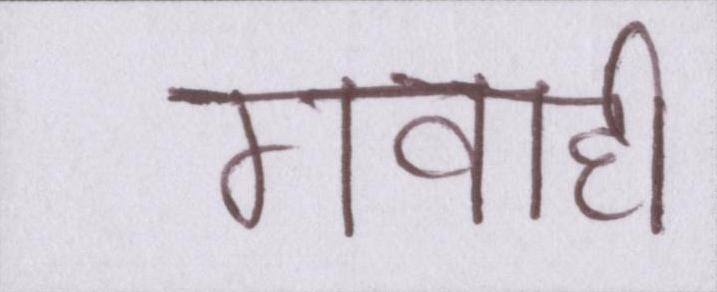 गवाही